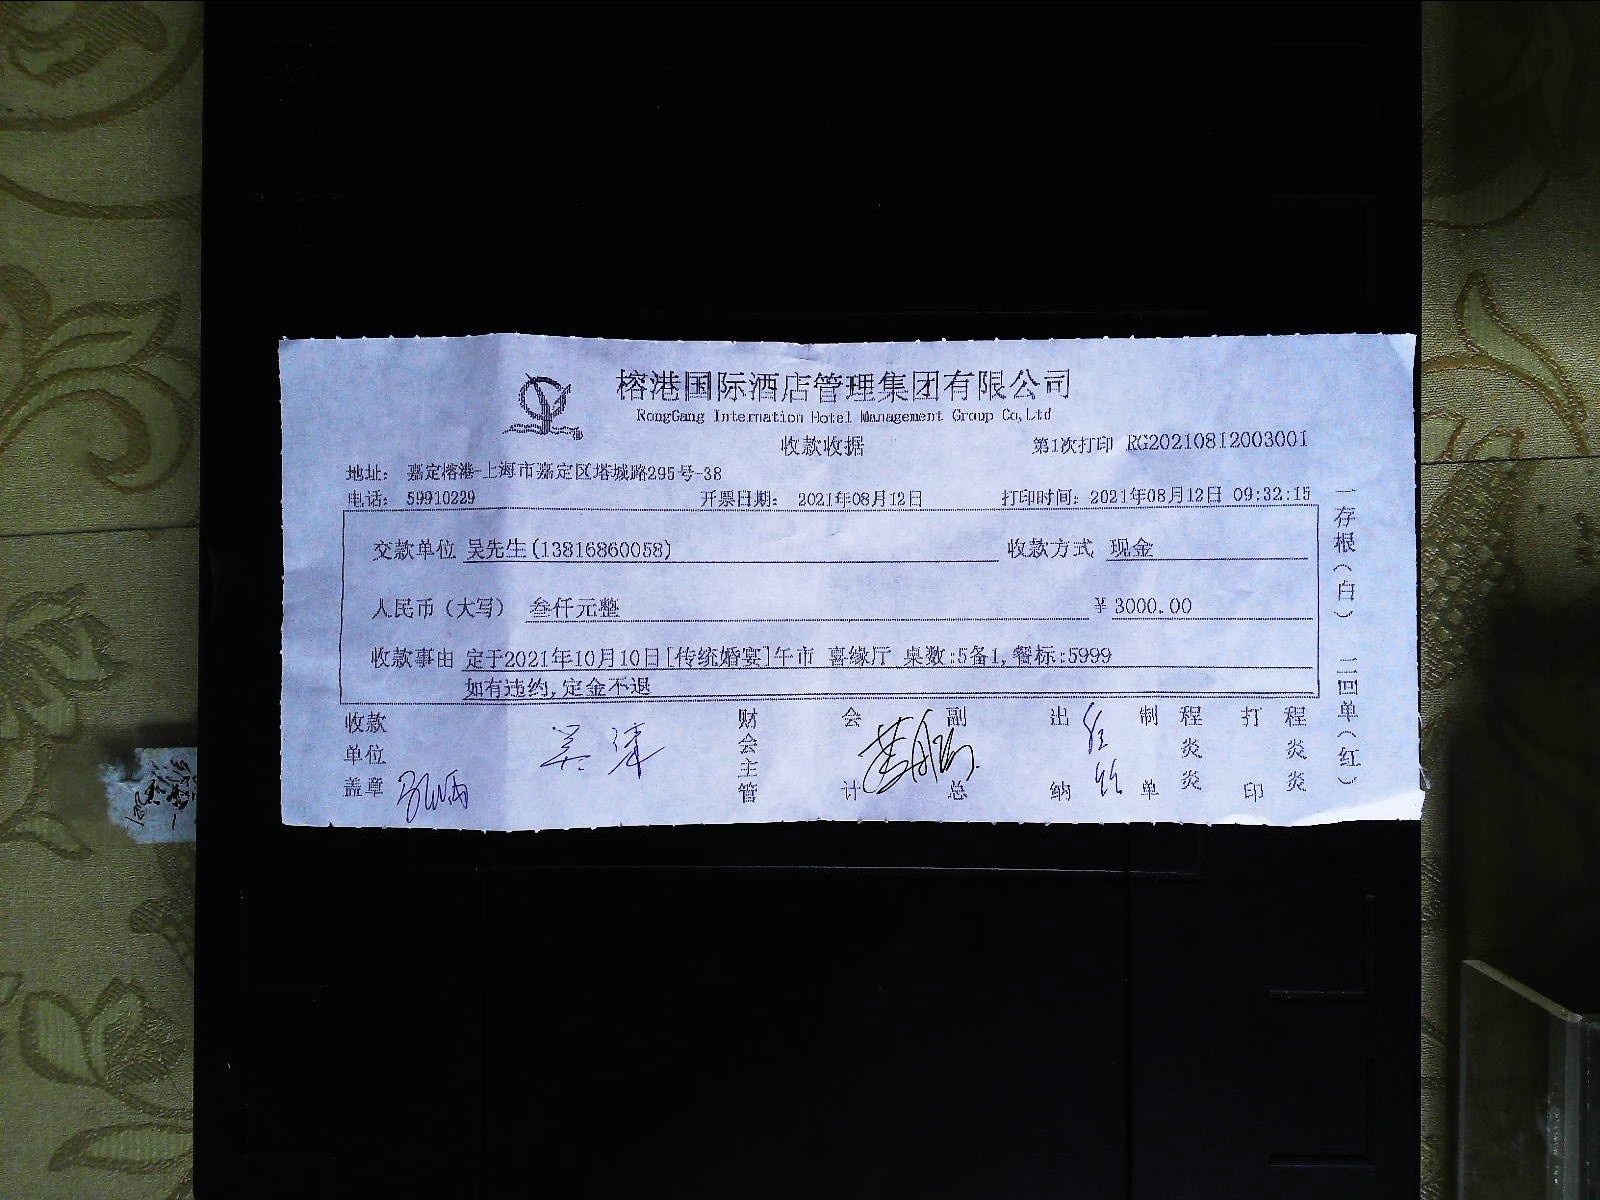 榕港国际酒店管理集团有限公司
RongGang Internation Hotel Management Group Co,Ltd
收款收据
第1次打印 RG20210812003001
地址: 嘉定榕港-上海市嘉定区塔城路295号-38
电话: 59910229 开票日期: 2021年08月12日 打印时间: 2021年08月12日 09:32:15
交款单位 吴先生(13816860058) 收款方式 现金
人民币(大写) 叁仟元整 ¥ 3000.00
收款事由 定于2021年10月10日[传统婚宴]午市 喜缘厅 桌数:5备1,餐标:5999
如有违约,定金不退
收款单位盖章 财会主管 会计 副总 出纳 制单 程炎炎 打印 程炎炎
一存根(白) 二回单(红)